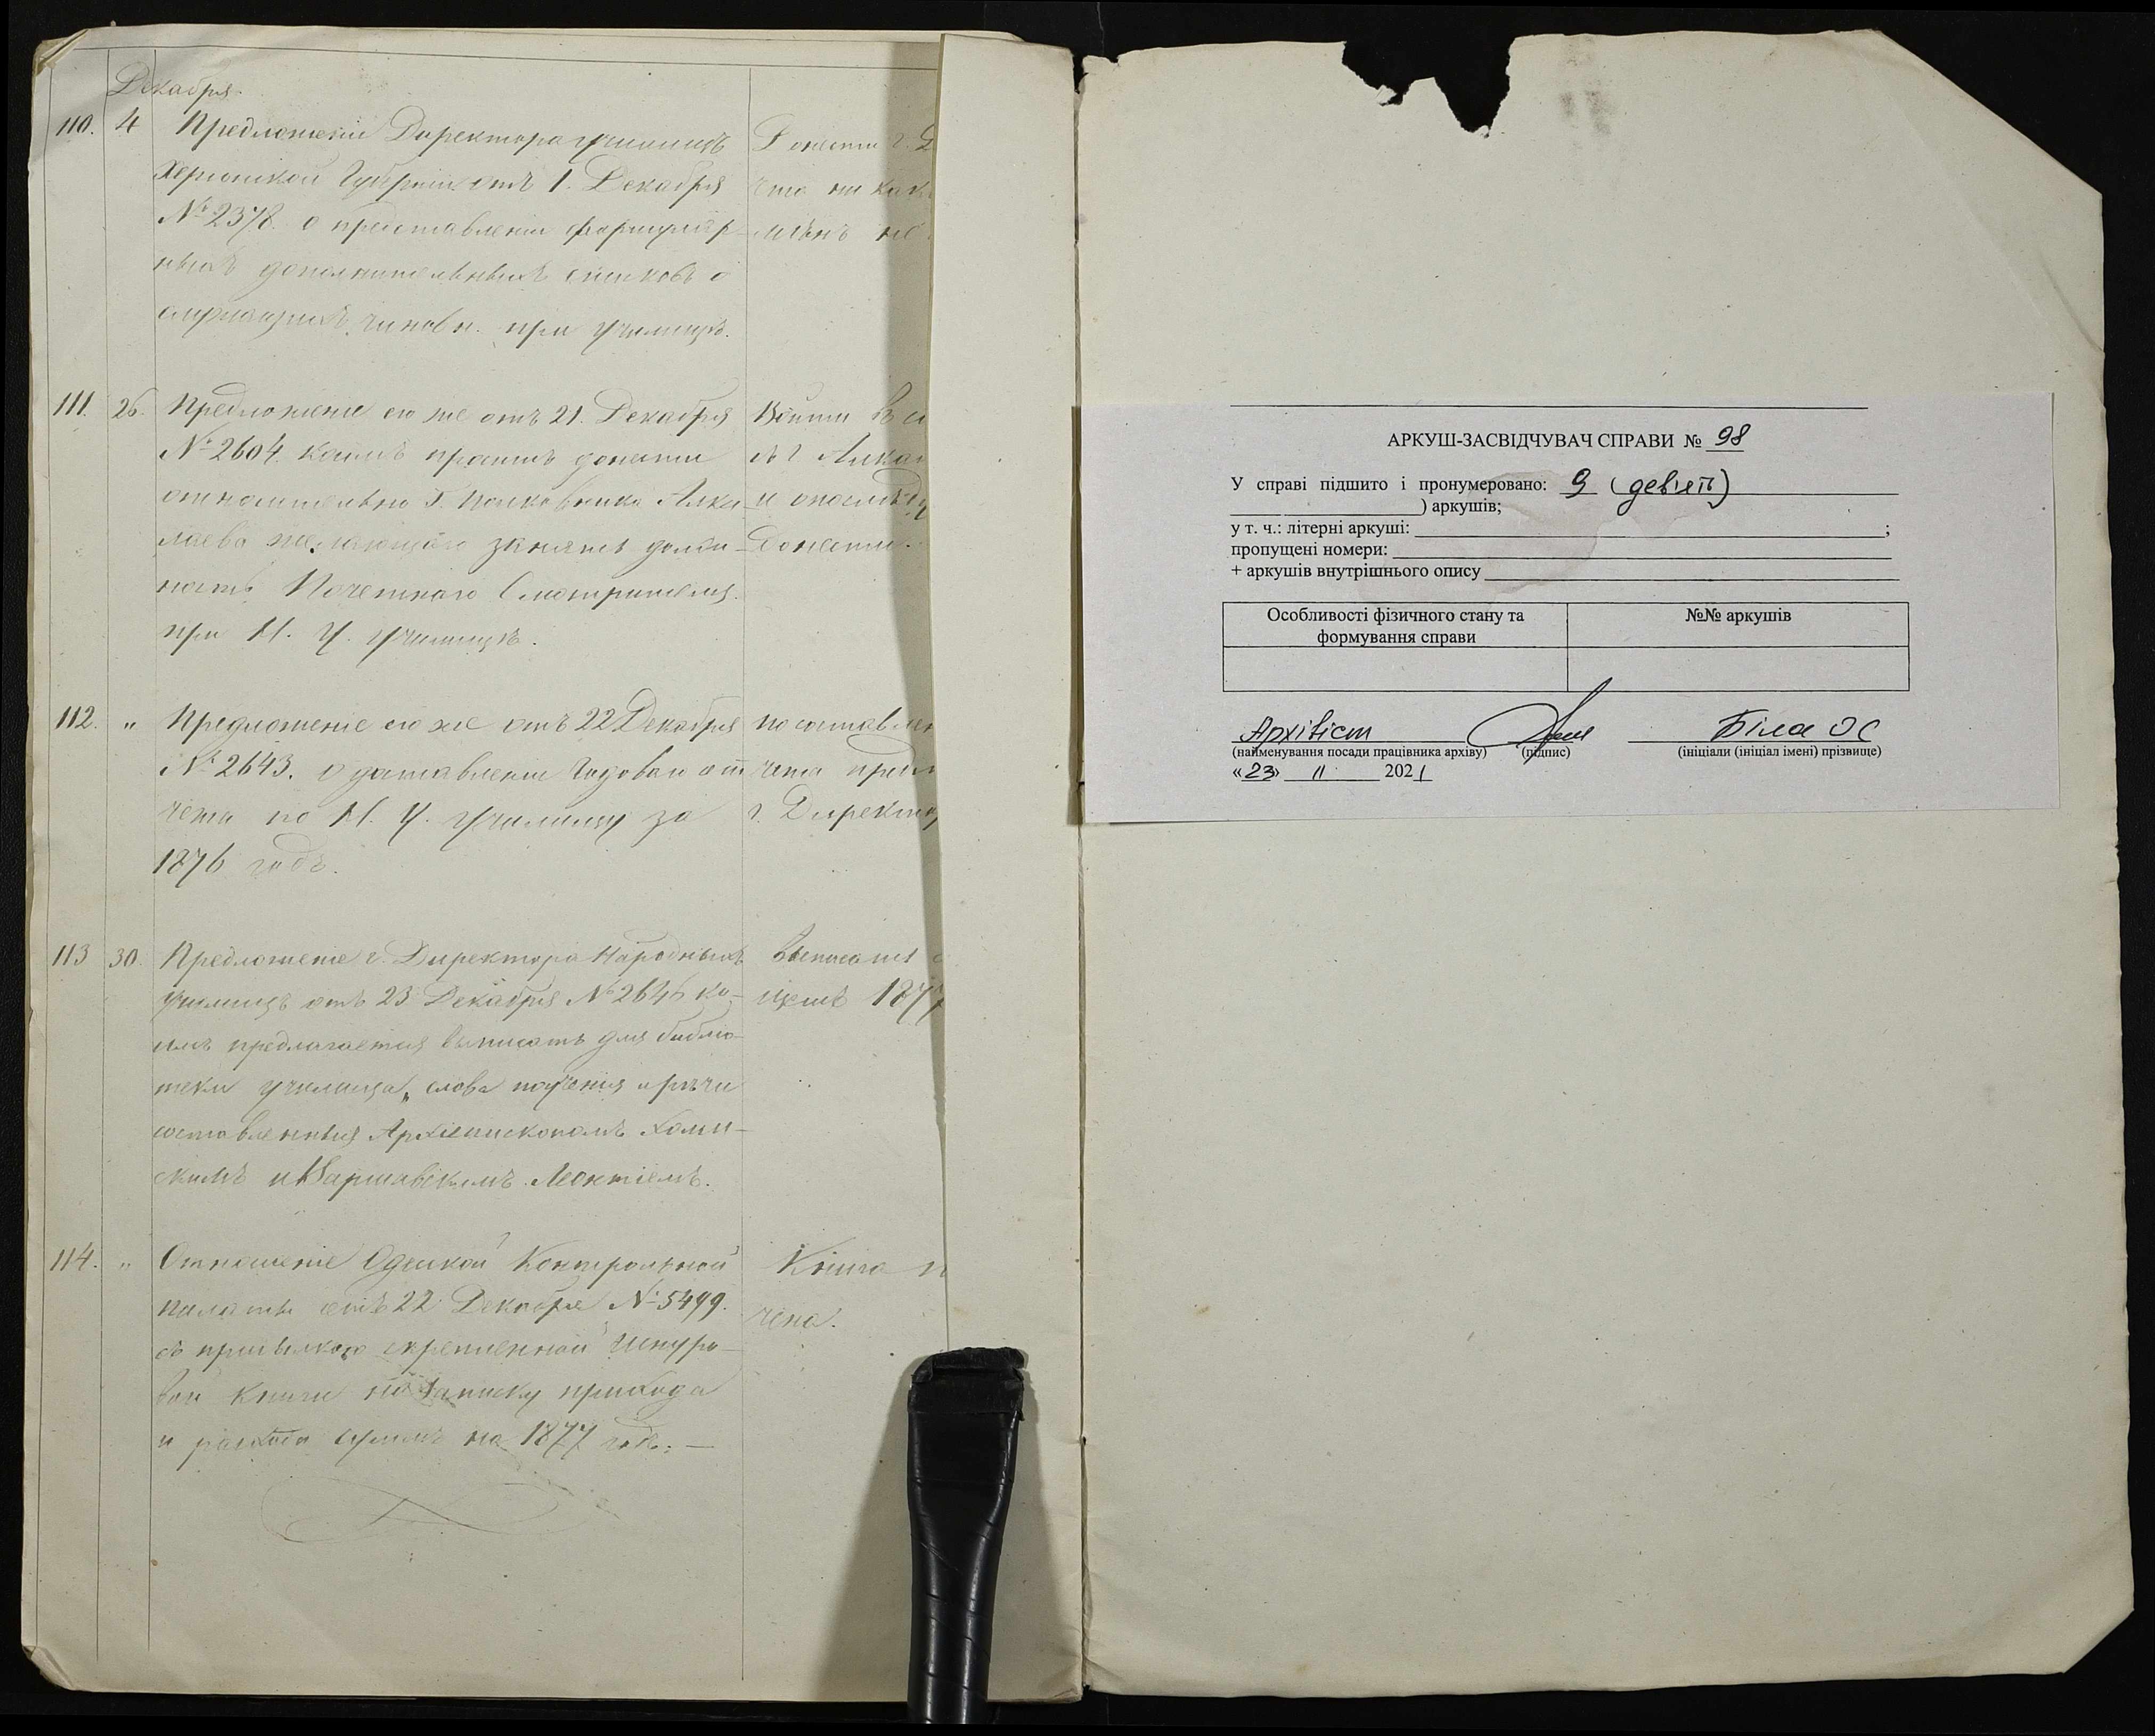 Декабря.
110. 4 Предложеніе Директора училищъ
Херсонской Губерніи отъ 1. Декабря
№ 2378. о представленіи формуляр-
ныхъ дополнительныхъ списковъ о
служащихъ чиновн. при училищѣ.
Донести г. Д
что ни как
мѣнъ не
111. 26. Предложеніе его же отъ 21. Декабря
№ 2604. коимъ проситъ донести
относительно Г. Полковника Алка-
лаева желающаго занять долж-
ность Почетнаго Смотрителя
при Н. У. училищѣ.
Войти въ с
съ г. Алкал
и
донести.
112. " Предложеніе его же отъ 22 Декабря
№ 2643. о доставленіи Годоваго от
чета по Н. У. училищу за
1876 годъ.
по составлен
чета предс
г. Директор
113 30. Предложеніе г. Директора Народныхъ
училищъ отъ 23 Декабря № 2646 ко-
имъ предлагается выписать для библіо-
теки училища „слова поученія и рѣчи
составленныя Архіепископомъ Холм-
скимъ и Варшавскимъ Леонтіемъ.
Выписать
1877
114. " Отношеніе Одесской Контрольной
палаты отъ 22 Декабря № 5499.
съ присылкою скрепленной Шнуро-
вой Книги на записку прихода
и расхода суммъ на 1877 годъ. —
Книга п
чена.
АРКУШ-ЗАСВІДЧУВАЧ СПРАВИ № 98
У справі підшито і пронумеровано: 9 (девять)
) аркушів;
у т. ч.: літерні аркуші: ;
пропущені номери:
+ аркушів внутрішнього опису
Особливості фізичного стану та
формування справи
№№ аркушів
Архівіст Біла ОС
(найменування посади працівника архіву) (підпис) (ініціали (ініціал імені) прізвище)
«23» 11 2021